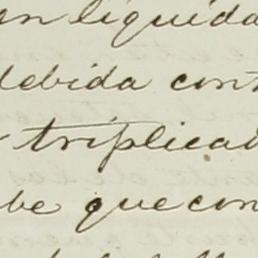 an liquida
debida cont
triplicad
be que con